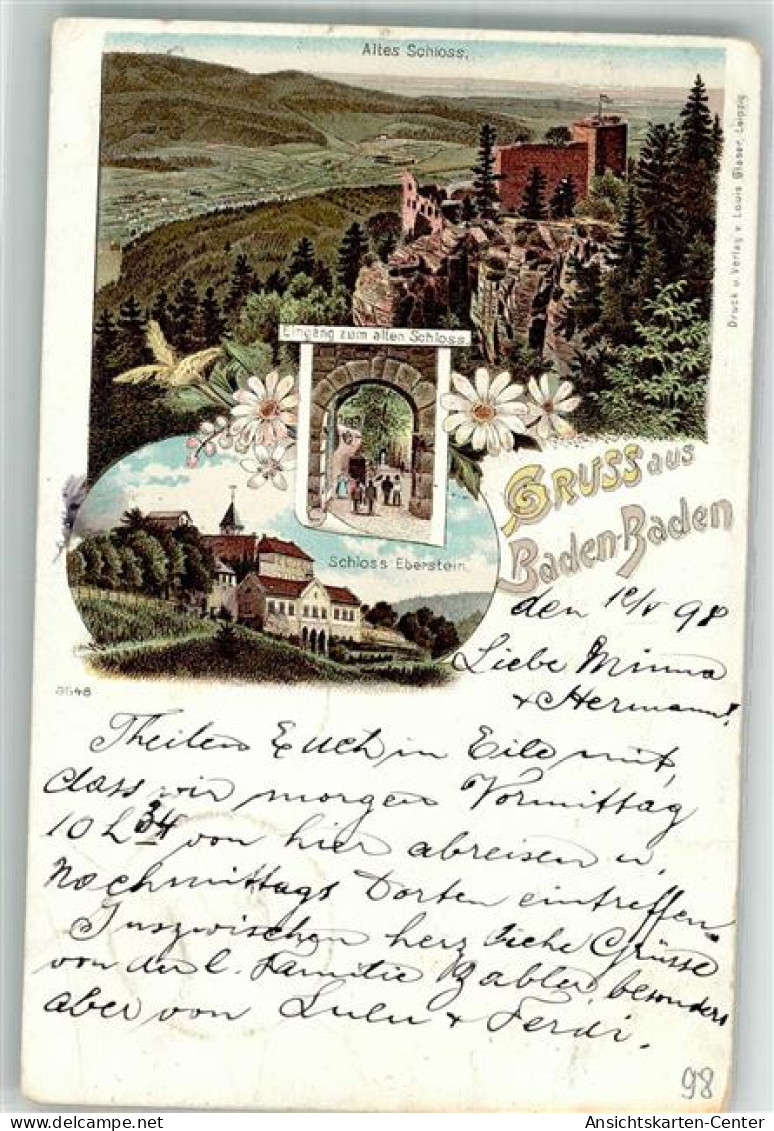 Altes Schloss.
Druck u. Verlag v. Louis Glaser, Leipzig
Eingang zum alten Schloss.
GRUSS aus
Baden-Baden
Schloss Eberstein.
den 12/V 98
Liebe Minna
+ Hermann!
3548
Theilen Euch in Eile mit,
dass wir morgen Vormittag
10 h 34 von hier abreisen u.
Nachmittags dorten eintreffen
Inzwischen herzliche Grüsse
von der l. Familie Zabler, besonders
aber von Lulu + Ferdi.
98
Ansichtskarten-Center